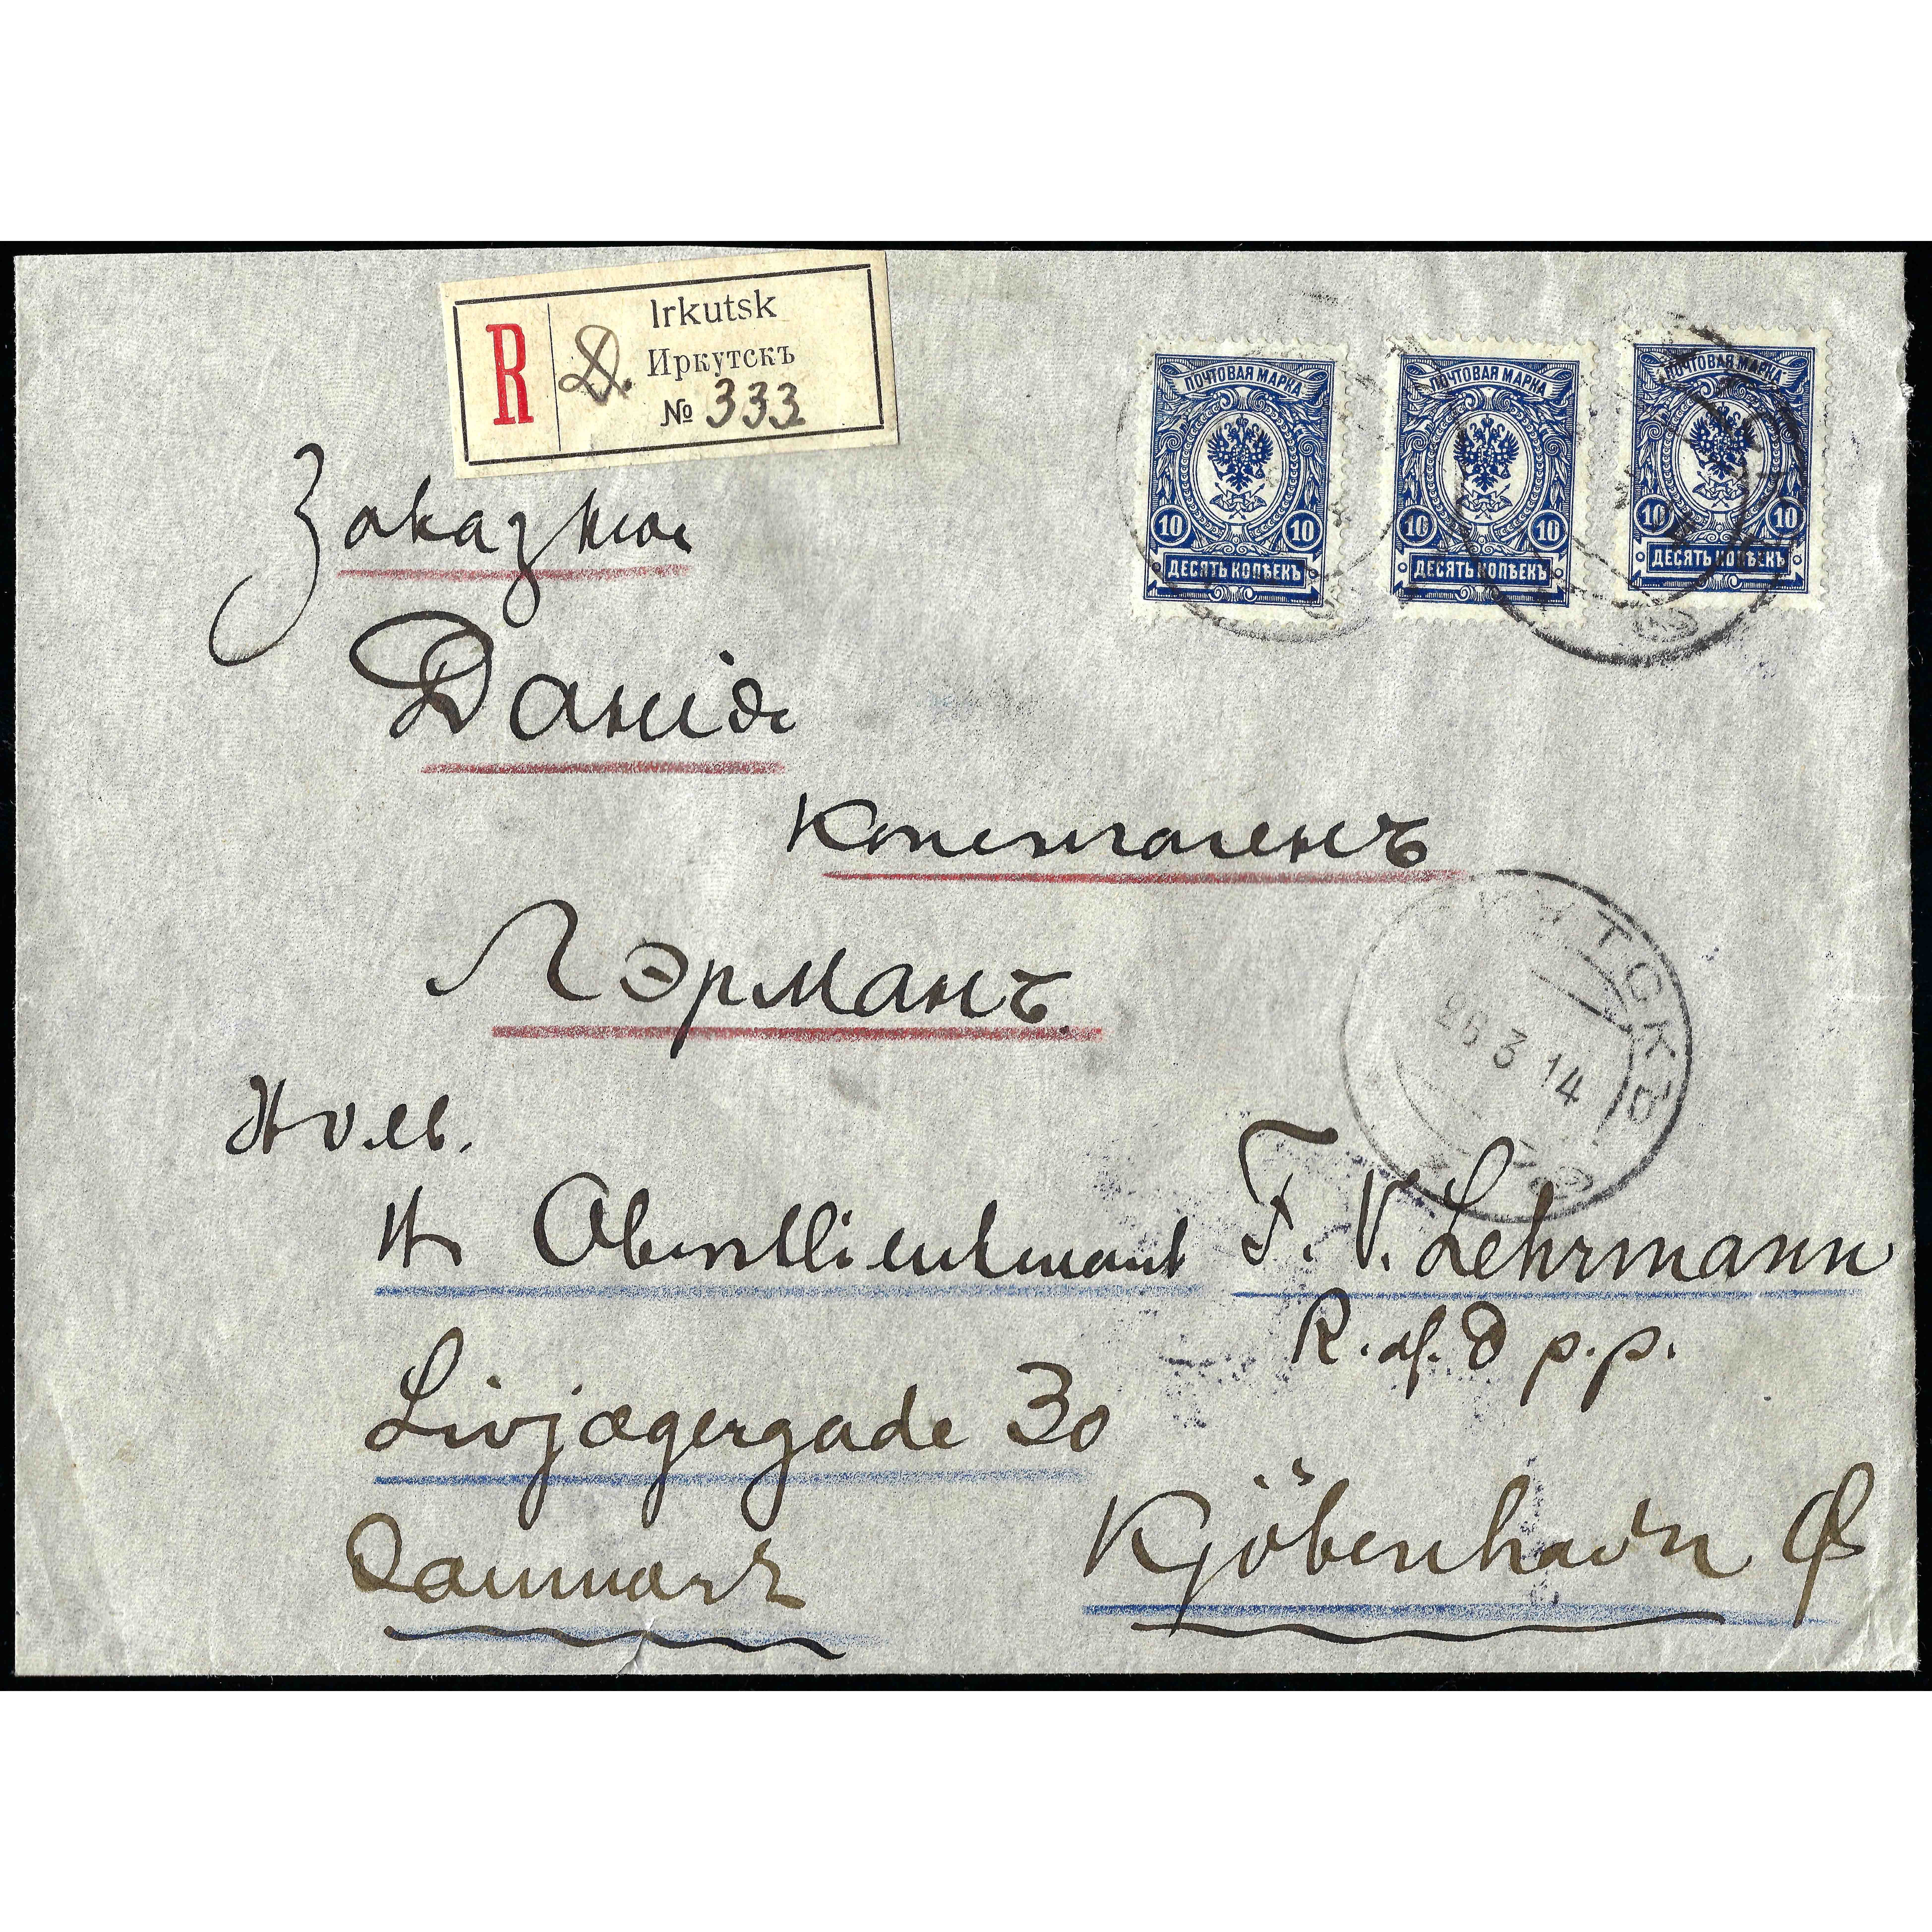 R
Irkutsk
Д. Иркутскъ
№ 333
ПОЧТОВАЯ МАРКА
10 10
ДЕСЯТЬ КОПѢЕКЪ
ПОЧТОВАЯ МАРКА
10 10
ДЕСЯТЬ КОПѢЕКЪ
ПОЧТОВАЯ МАРКА
10 10
ДЕСЯТЬ КОПѢЕКЪ
Заказное
Данія
Копенгагенъ
Лэрманъ.
26 3 14
Hr Oberstlieutenant F. V. Lehrmann
R. af. D p.p.
Livjægergade 30
Danmark
Kjöbenhavn Ø